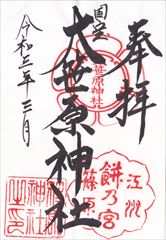 奉拝
国宝
大笹原神社
令和三年三月
笹原神社
江州
餅乃宮
篠原